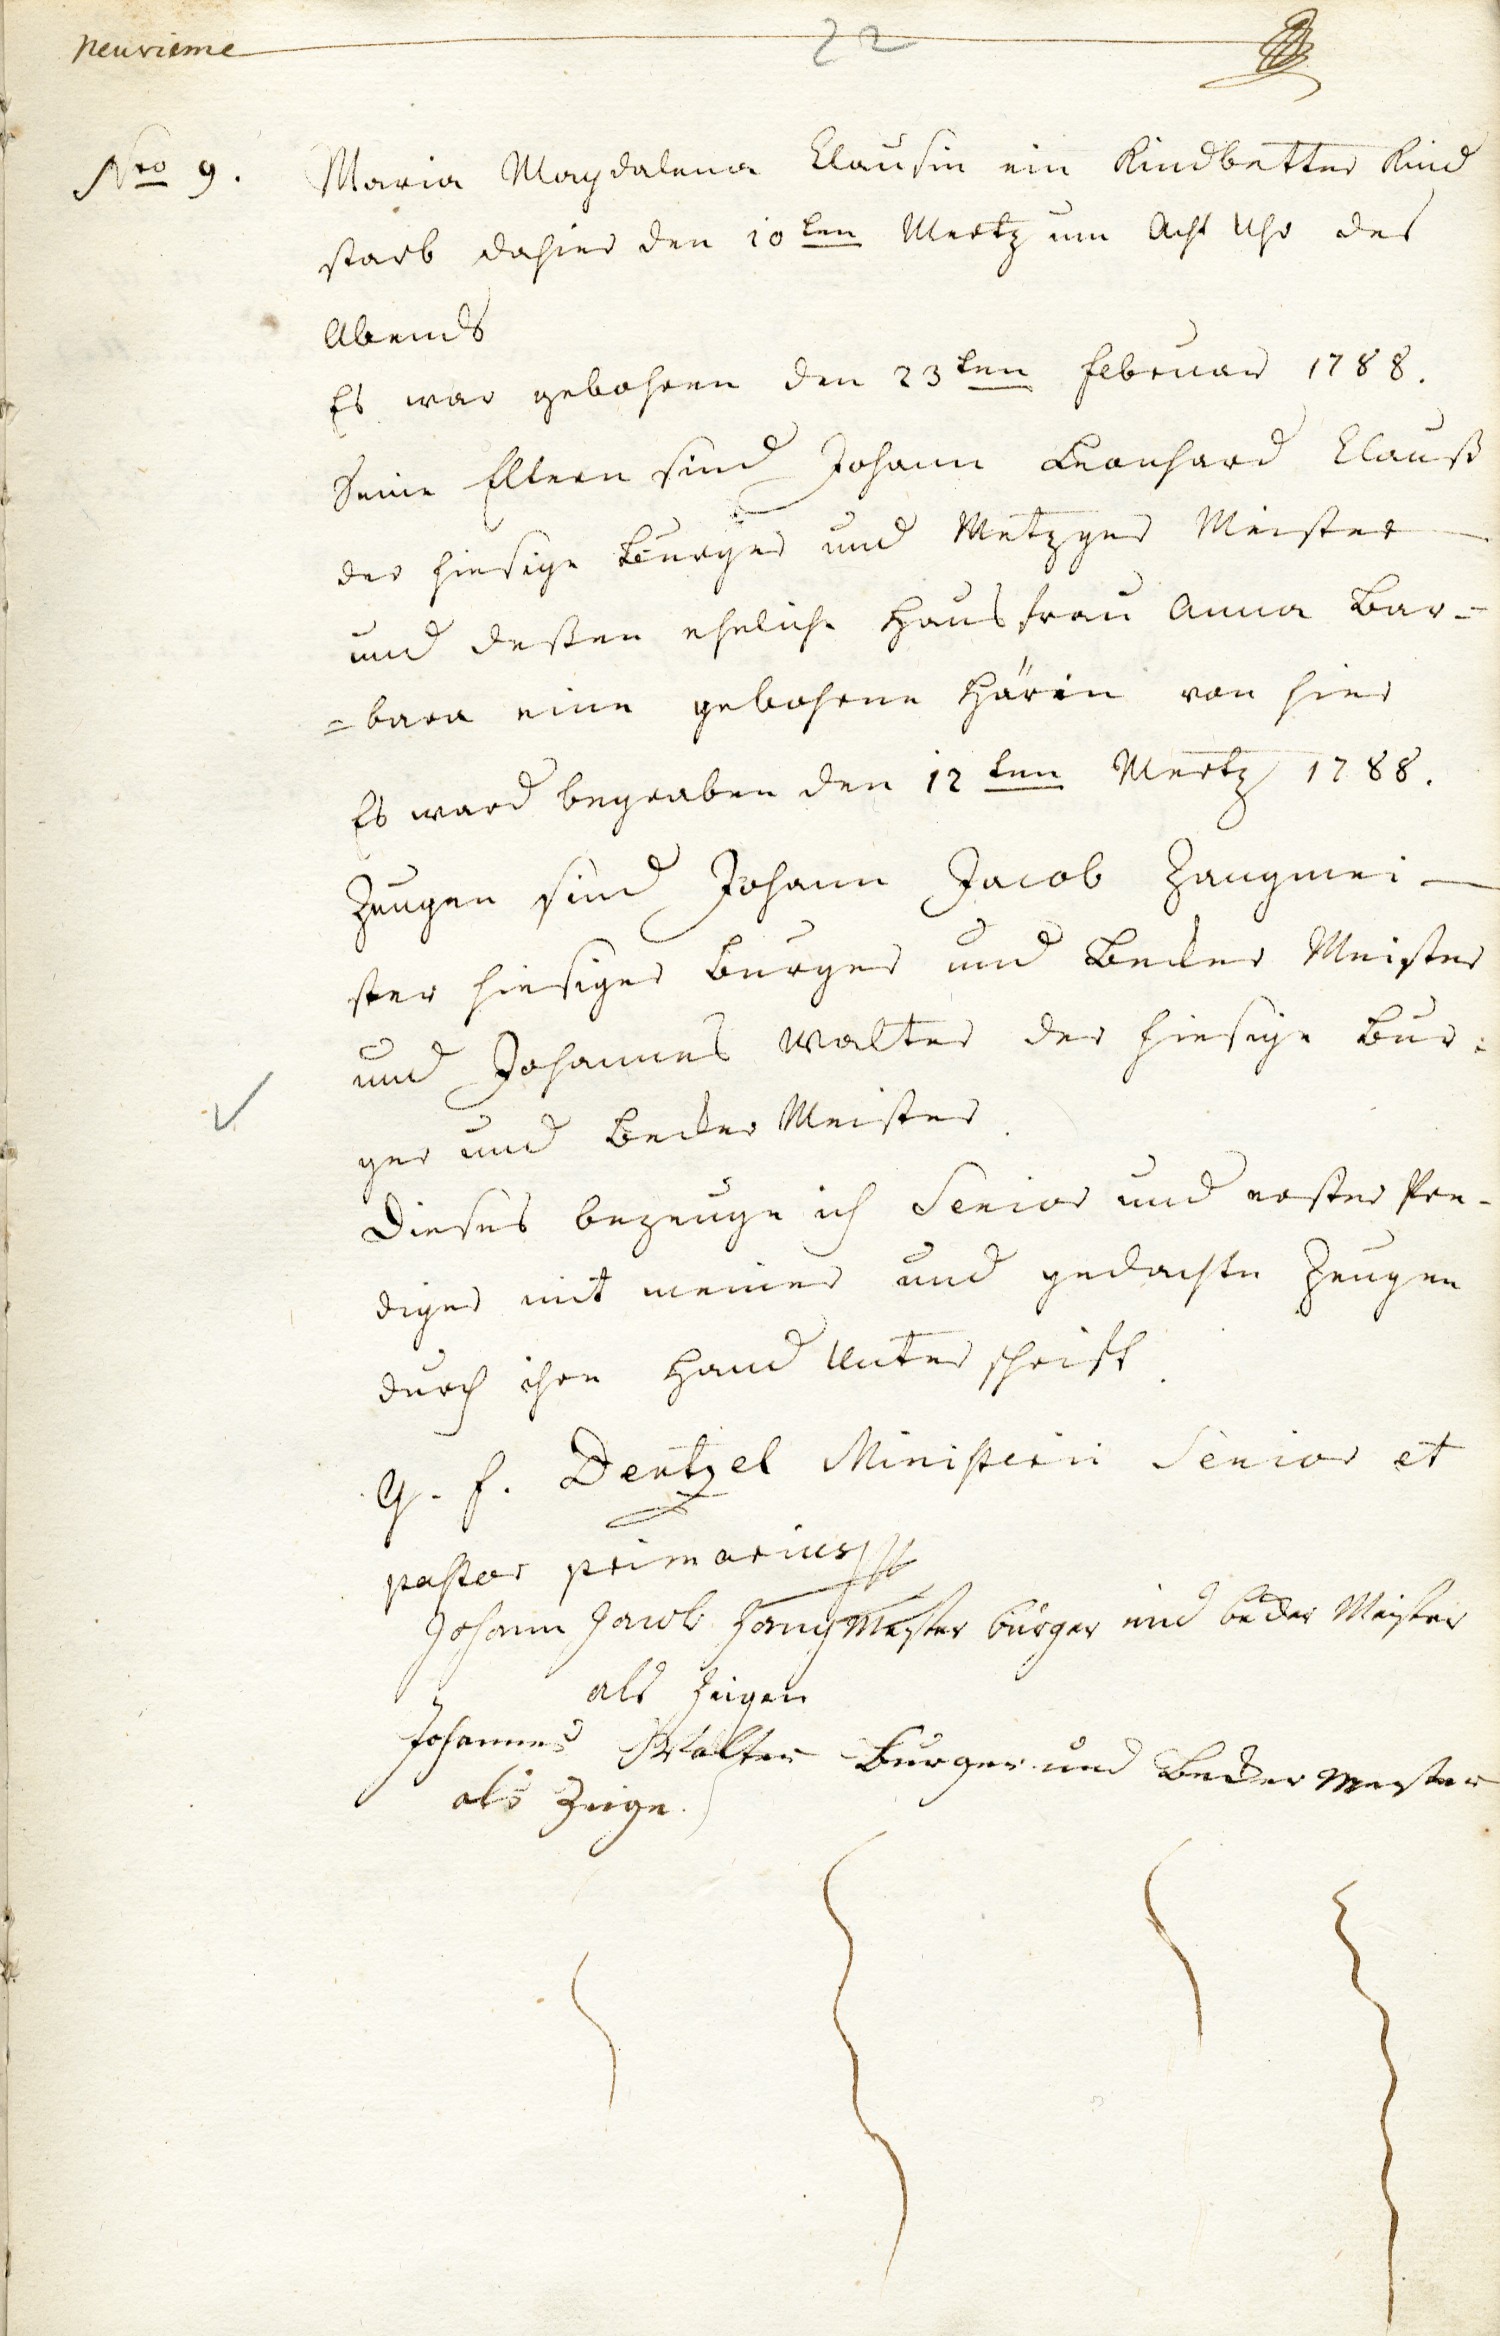 neuvieme
22
Nro 9.
Maria Magdalena Clausin ein Kindbetter Kind
starb dahier den 10ten Mertz um Acht Uhr des
Abends
Es war gebohren den 23ten Februar 1788.
Seine Eltern sind Johann Leonhard Clauß
der hiesige Burger und Metzger Meister
und deßen eheliche Hausfrau Anna Bar=
=bara eine gebohrne Härin von hier
Es ward begraben den 12ten Mertz 1788.
Zeugen sind Johann Jacob Zangmei-
ster hiesiger Burger und Becker Meister
und Johannes Walter der hiesige Bur=
ger und Becker Meister
Dieses bezeuge ich Senior und erster Pre-
diger mit meiner und gedachte Zeugen
durch ihre Hand Unterschrift.
G. F. Dentzel Ministerii Senior et
pastor primarius
Johann Jacob Zangmeister burger und becker Meister
als Zeigen
Johannes Walter Burger und Becker Meister
als Zeige.